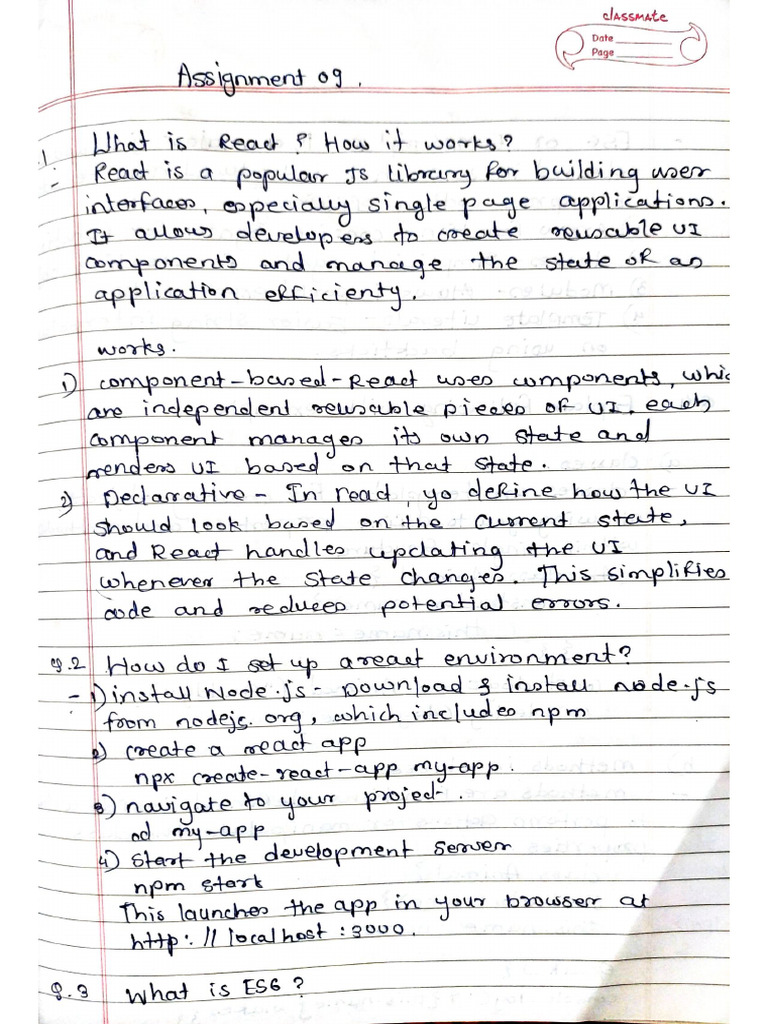 classmate
Date
Page
Assignment 09.
.1 What is React? How it works?
- React is a popular JS library for building user
interfaces, especially single page applications.
It allows developers to create reusable UI
components and manage the state of an
application efficienty.
works.
1) component-based-React uses components, whic
are independent reusable pieces of UI. each
component manages its own state and
renders UI based on that state.
2) Declarative - In react, yo define how the UI
should look based on the current state,
and React handles updating the UI
whenever the state changes. This simplifies
code and reduces potential errors.
Q.2 How do I set up a react environment?
- 1) install Node.js - Download & install node.js
from nodejs.org, which includes npm
2) create a react app
npx create-react-app my-app.
3) navigate to your project.
cd my-app
4) Start the development server
npm start
This launches the app in your browser at
http://localhost:3000.
Q.3 What is ES6?